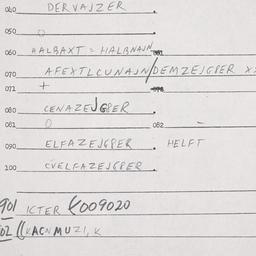 040 DERVAJZER
050 O
060 HALBAXT = HALBNAJN
070 AFEXTLCUNAJN/DEMZEJGPER X
071 +
080 CENAZEJGPER
081 0 082 -
090 ELFAZEJGPER. HELFT
100 CVELFAZEJGPER
901 ICTER (009020
02 ((KACNMUZI, K